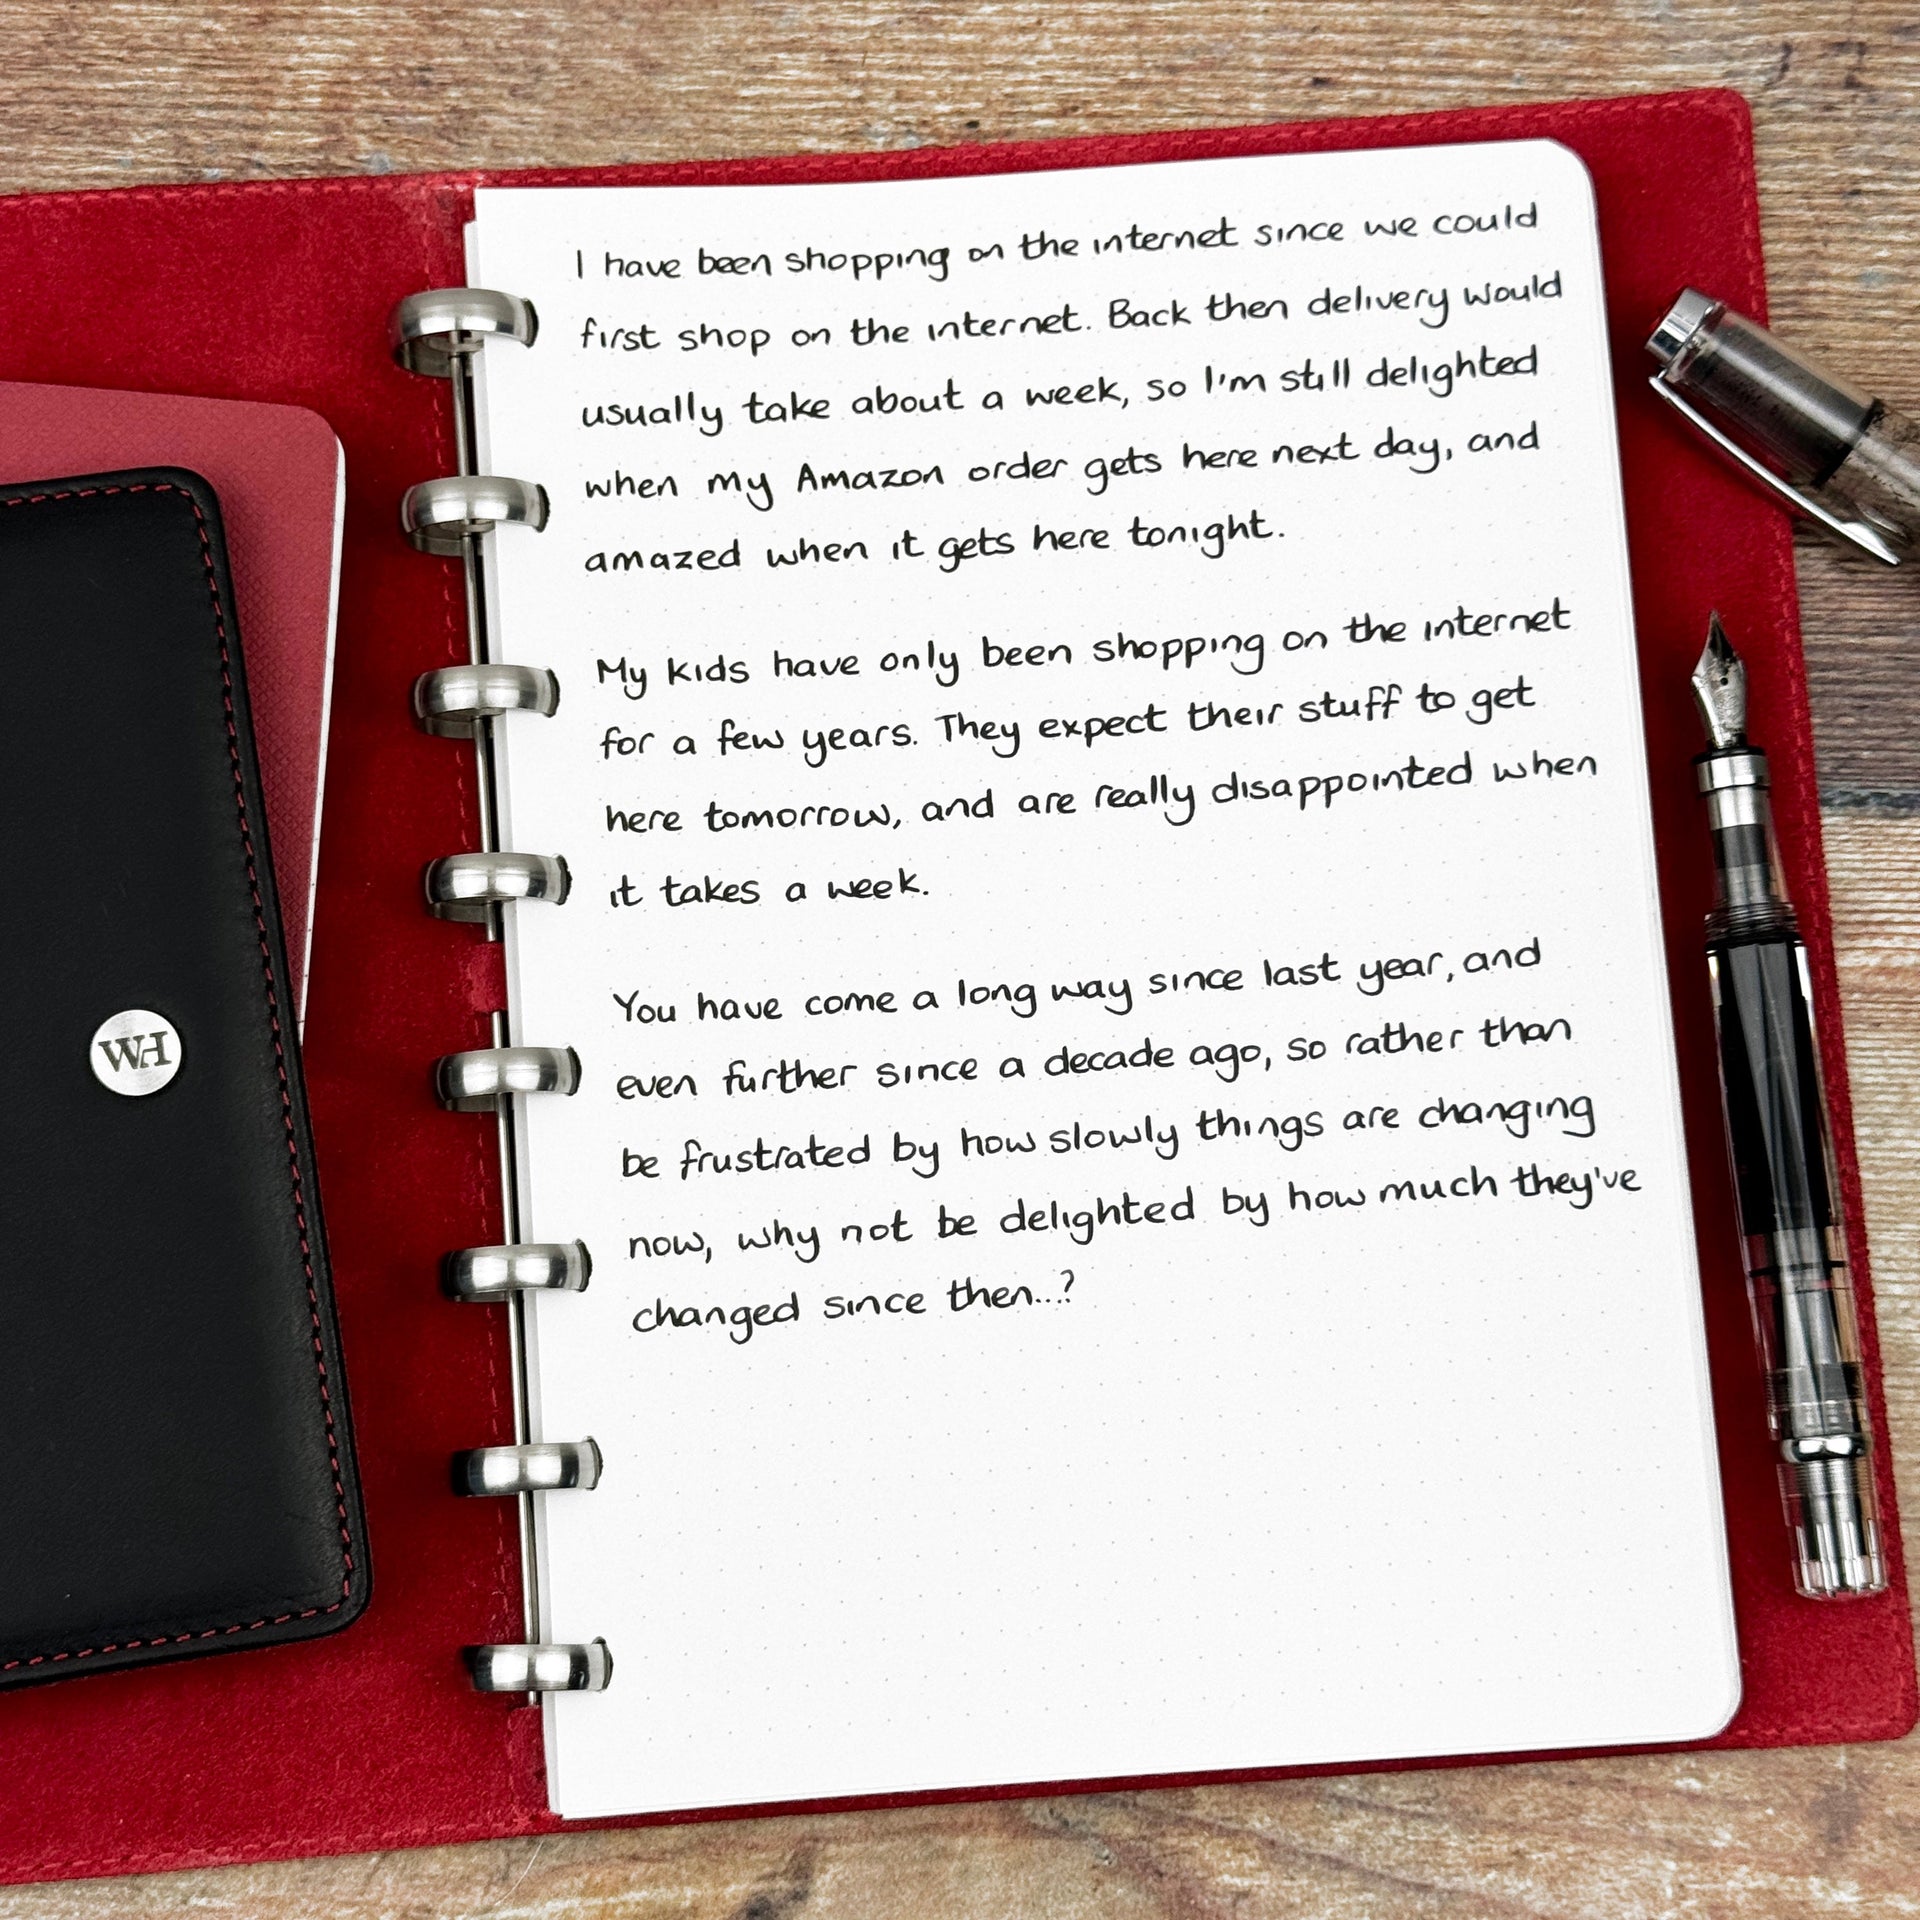 I have been shopping on the internet since we could
first shop on the internet. Back then delivery would
usually take about a week, so I'm still delighted
when my Amazon order gets here next day, and
amazed when it gets here tonight.
My kids have only been shopping on the internet
for a few years. They expect their stuff to get
here tomorrow, and are really disappointed when
it takes a week.
You have come a long way since last year, and
even further since a decade ago, so rather than
be frustrated by how slowly things are changing
now, why not be delighted by how much they've
changed since then...?
WH